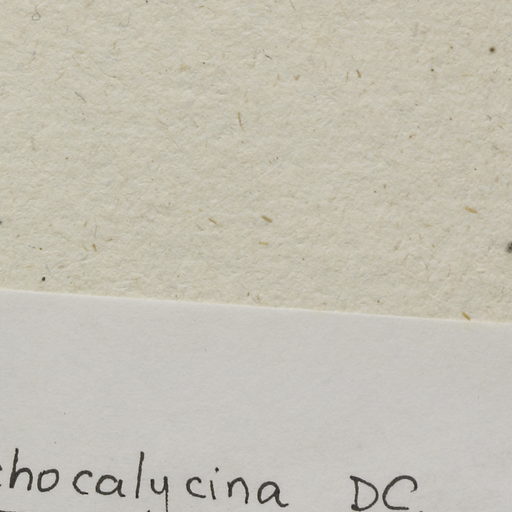 chocalycina DC.